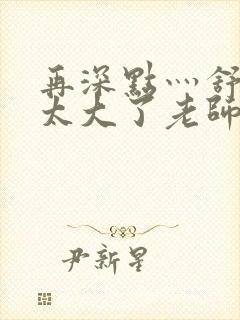 再深點灬舒
太大了老師
尹新星